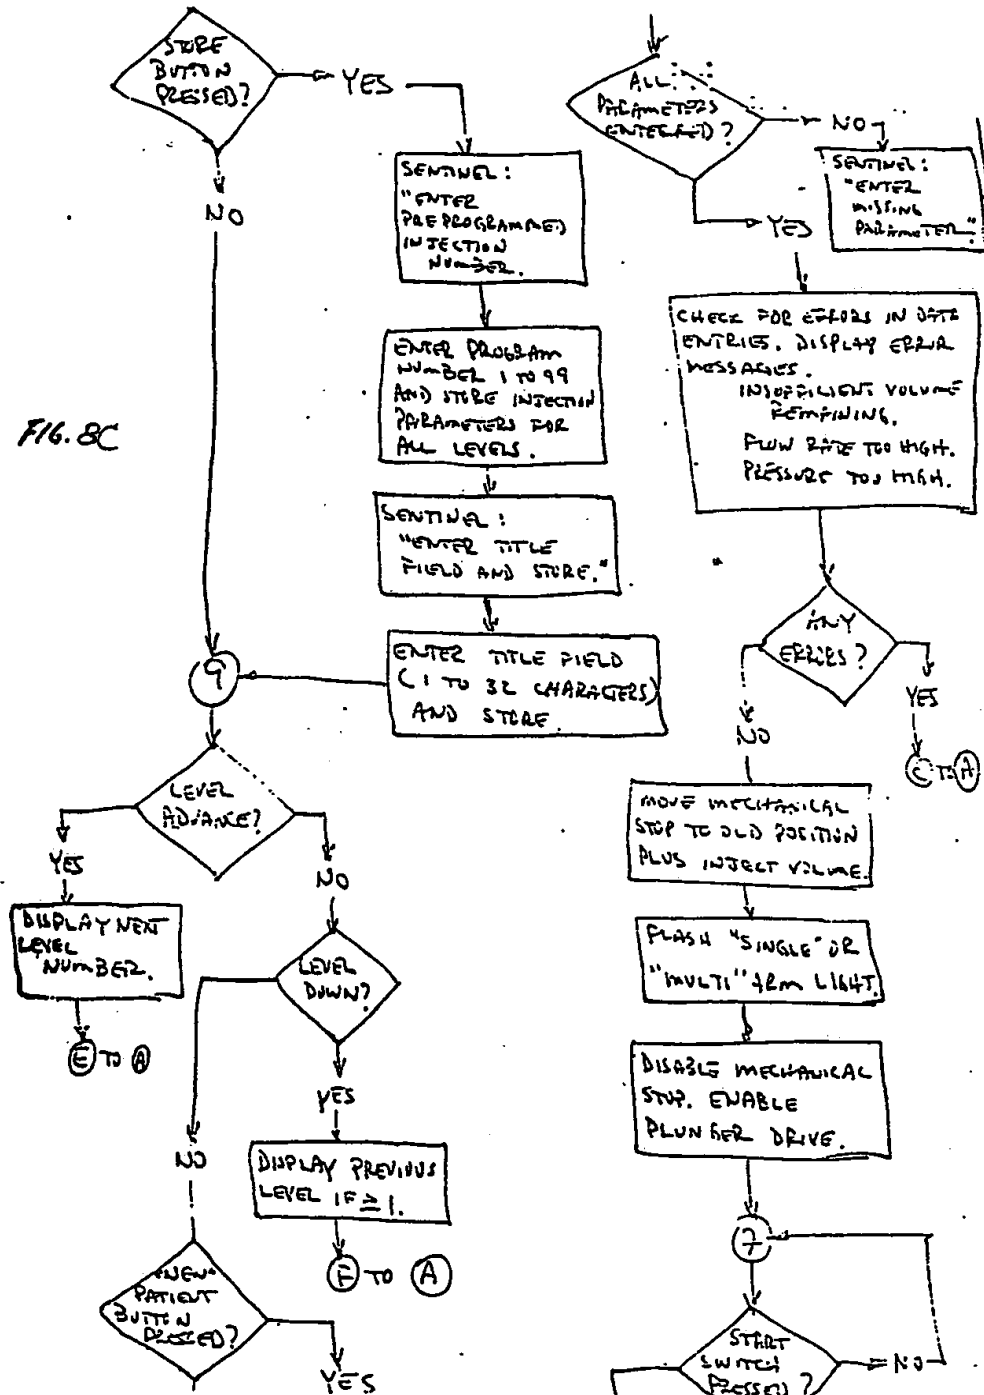 STORE
BUTTON
PRESSED?
YES
NO
SENTINEL:
"ENTER
PREPROGRAMMED
INJECTION
NUMBER.
ENTER PROGRAM
NUMBER 1 TO 99
AND STORE INJECTION
PARAMETERS FOR
ALL LEVELS.
FIG. 8C
SENTINEL:
"ENTER TITLE
FIELD AND STORE."
ENTER TITLE FIELD
(1 TO 32 CHARACTERS)
AND STORE.
9
LEVEL
ADVANCE?
YES
NO
DISPLAY NEXT
LEVEL
NUMBER.
E TO A
LEVEL
DOWN?
YES
NO
DISPLAY PREVIOUS
LEVEL IF ≥ 1.
F TO A
"NEW"
PATIENT
BUTTON
PRESSED?
YES
ALL
PARAMETERS
ENTERED?
NO
SENTINEL:
"ENTER
MISSING
PARAMETER."
YES
CHECK FOR ERRORS IN DATA
ENTRIES. DISPLAY ERROR
MESSAGES.
INSUFFICIENT VOLUME
REMAINING.
FLOW RATE TOO HIGH.
PRESSURE TOO HIGH.
ANY
ERRORS?
YES
C TO A
NO
MOVE MECHANICAL
STOP TO OLD POSITION
PLUS INJECT VOLUME.
FLASH "SINGLE" OR
"MULTI" ARM LIGHT.
DISABLE MECHANICAL
STOP. ENABLE
PLUNGER DRIVE.
7
START
SWITCH
PRESSED?
NO